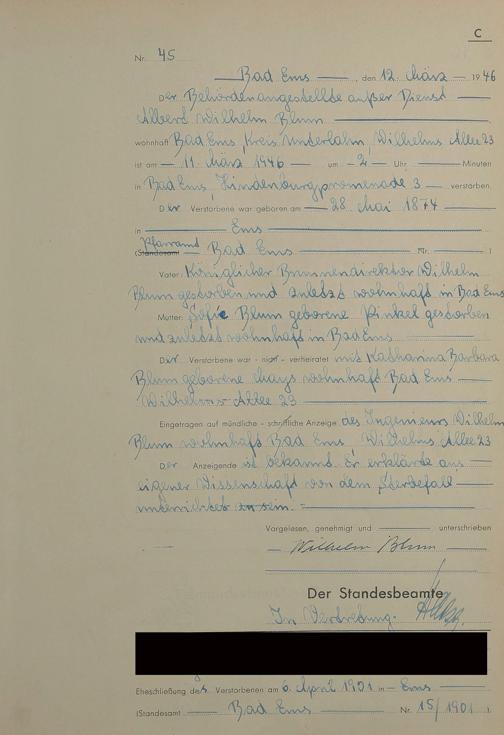 C
Nr. 45
Bad Ems, den 12. März 1946
Der Behördenangestellte außer Dienst
Albert Wilhelm Blum
wohnhaft Bad Ems, Kreis Unterlahn, Wilhelms Allee 23
ist am 11. März 1946 um 2 Uhr Minuten
in Bad Ems, Hindenburgpromenade 3 verstorben.
Der Verstorbene war geboren am 28. Mai 1874
in Ems
Pfarramt
(Standesamt Bad Ems Nr. )
Vater: Königlicher Brunnendirektor Wilhelm
Blum gestorben und zuletzt wohnhaft in Bad Ems
Mutter: Sofie Blum geborene Pinkel gestorben
und zuletzt wohnhaft in Bad Ems
Der Verstorbene war - nicht - verheiratet mit Katharina Barbara
Blum geborene Mays wohnhaft Bad Ems
Wilhelms-Allee 23
Eingetragen auf mündliche - schriftliche Anzeige des Ingenieurs Wilhelm
Blum wohnhaft Bad Ems Wilhelms Allee 23
Der Anzeigende ist bekannt. Er erklärte aus
eigener Wissenschaft von dem Sterbefall
unterrichtet zu sein.
Vorgelesen, genehmigt und unterschrieben
Wilhelm Blum
Der Standesbeamte
In Vertretung.
Eheschließung des Verstorbenen am 6. April 1901 in Ems
(Standesamt Bad Ems Nr. 15/1901 ).